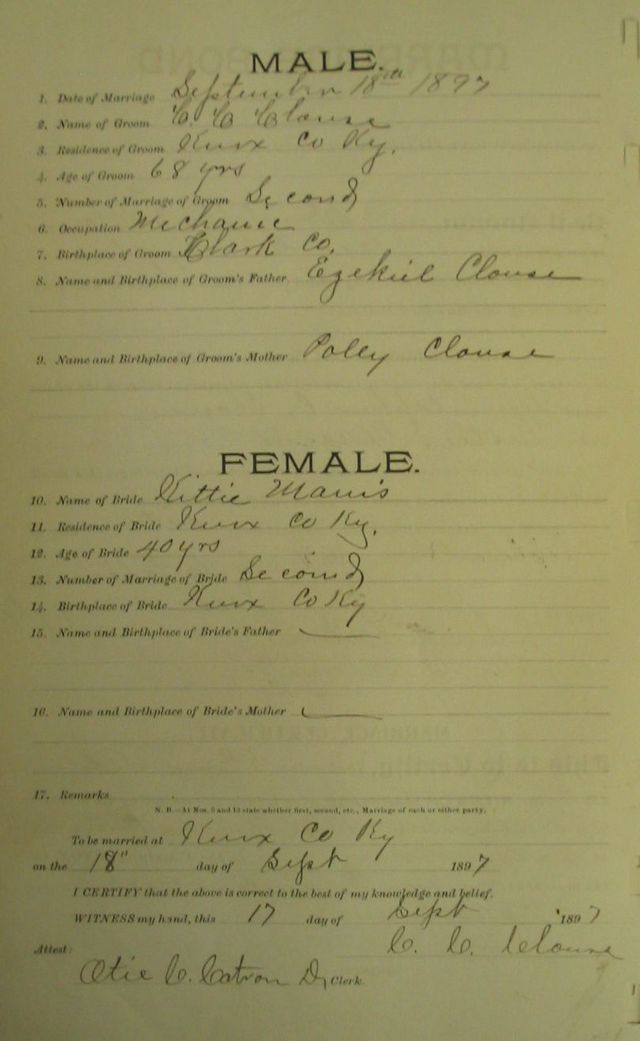 MALE.
1. Date of Marriage September 18th 1897
2. Name of Groom C. C. Clouse
3. Residence of Groom Knox Co Ky.
4. Age of Groom 68 yrs
5. Number of Marriage of Groom Second
6. Occupation Mechanic
7. Birthplace of Groom Clark Co.
8. Name and Birthplace of Groom's Father Ezekiel Clouse
9. Name and Birthplace of Groom's Mother Polly Clouse
FEMALE.
10. Name of Bride Kittie Manis
11. Residence of Bride Knox Co Ky.
12. Age of Bride 40 yrs
13. Number of Marriage of Bride Second
14. Birthplace of Bride Knox Co Ky
15. Name and Birthplace of Bride's Father
16. Name and Birthplace of Bride's Mother
17. Remarks
N. B.—At Nos. 5 and 13 state whether first, second, etc., Marriage of each or either party.
To be married at Knox Co Ky
on the 18" day of Sept 1897
I CERTIFY that the above is correct to the best of my knowledge and belief.
WITNESS my hand, this 17 day of Sept 1897
C. C. Clouse
Attest:
Otie C. Catron D, Clerk